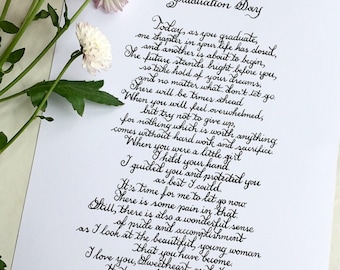 Graduation Day
Today, as you graduate,
one chapter in your life has closed,
and another is about to begin,
The future stands bright before you,
so take hold of your dreams,
And no matter what don't let go.
There will be times ahead
When you will feel overwhelmed,
but try not to give up,
for nothing which is worth anything
comes without hard work and sacrifice.
When you were a little girl
I held your hand.
I guided you and protected you
as best I could.
It's time for me to let go now
There is some pain in that
Still, there is also a wonderful sense
of pride and accomplishment
as I look at the beautiful, young woman
that you have become.
I love you, Sweetheart